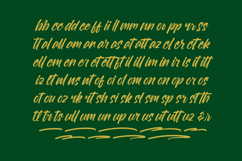 bb cc dd ee ff ii ll mm nn oo pp rr ss
tt al all am an ar as at att az el er et ek
ell em en er et ett ft il ill im in ir is it itt
iz ll nl ns nt of oi ol om on on op or os
ou oz rk rt sh si sk sl sm sp sr st th
tl tr ts ull um un up ur us ut utt uz & r